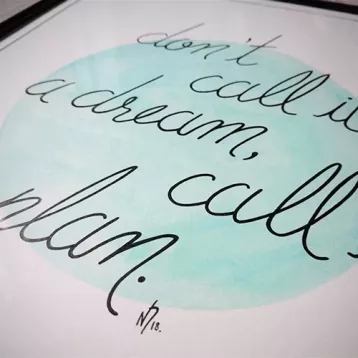 don't
call i
a dream,
call
plan.